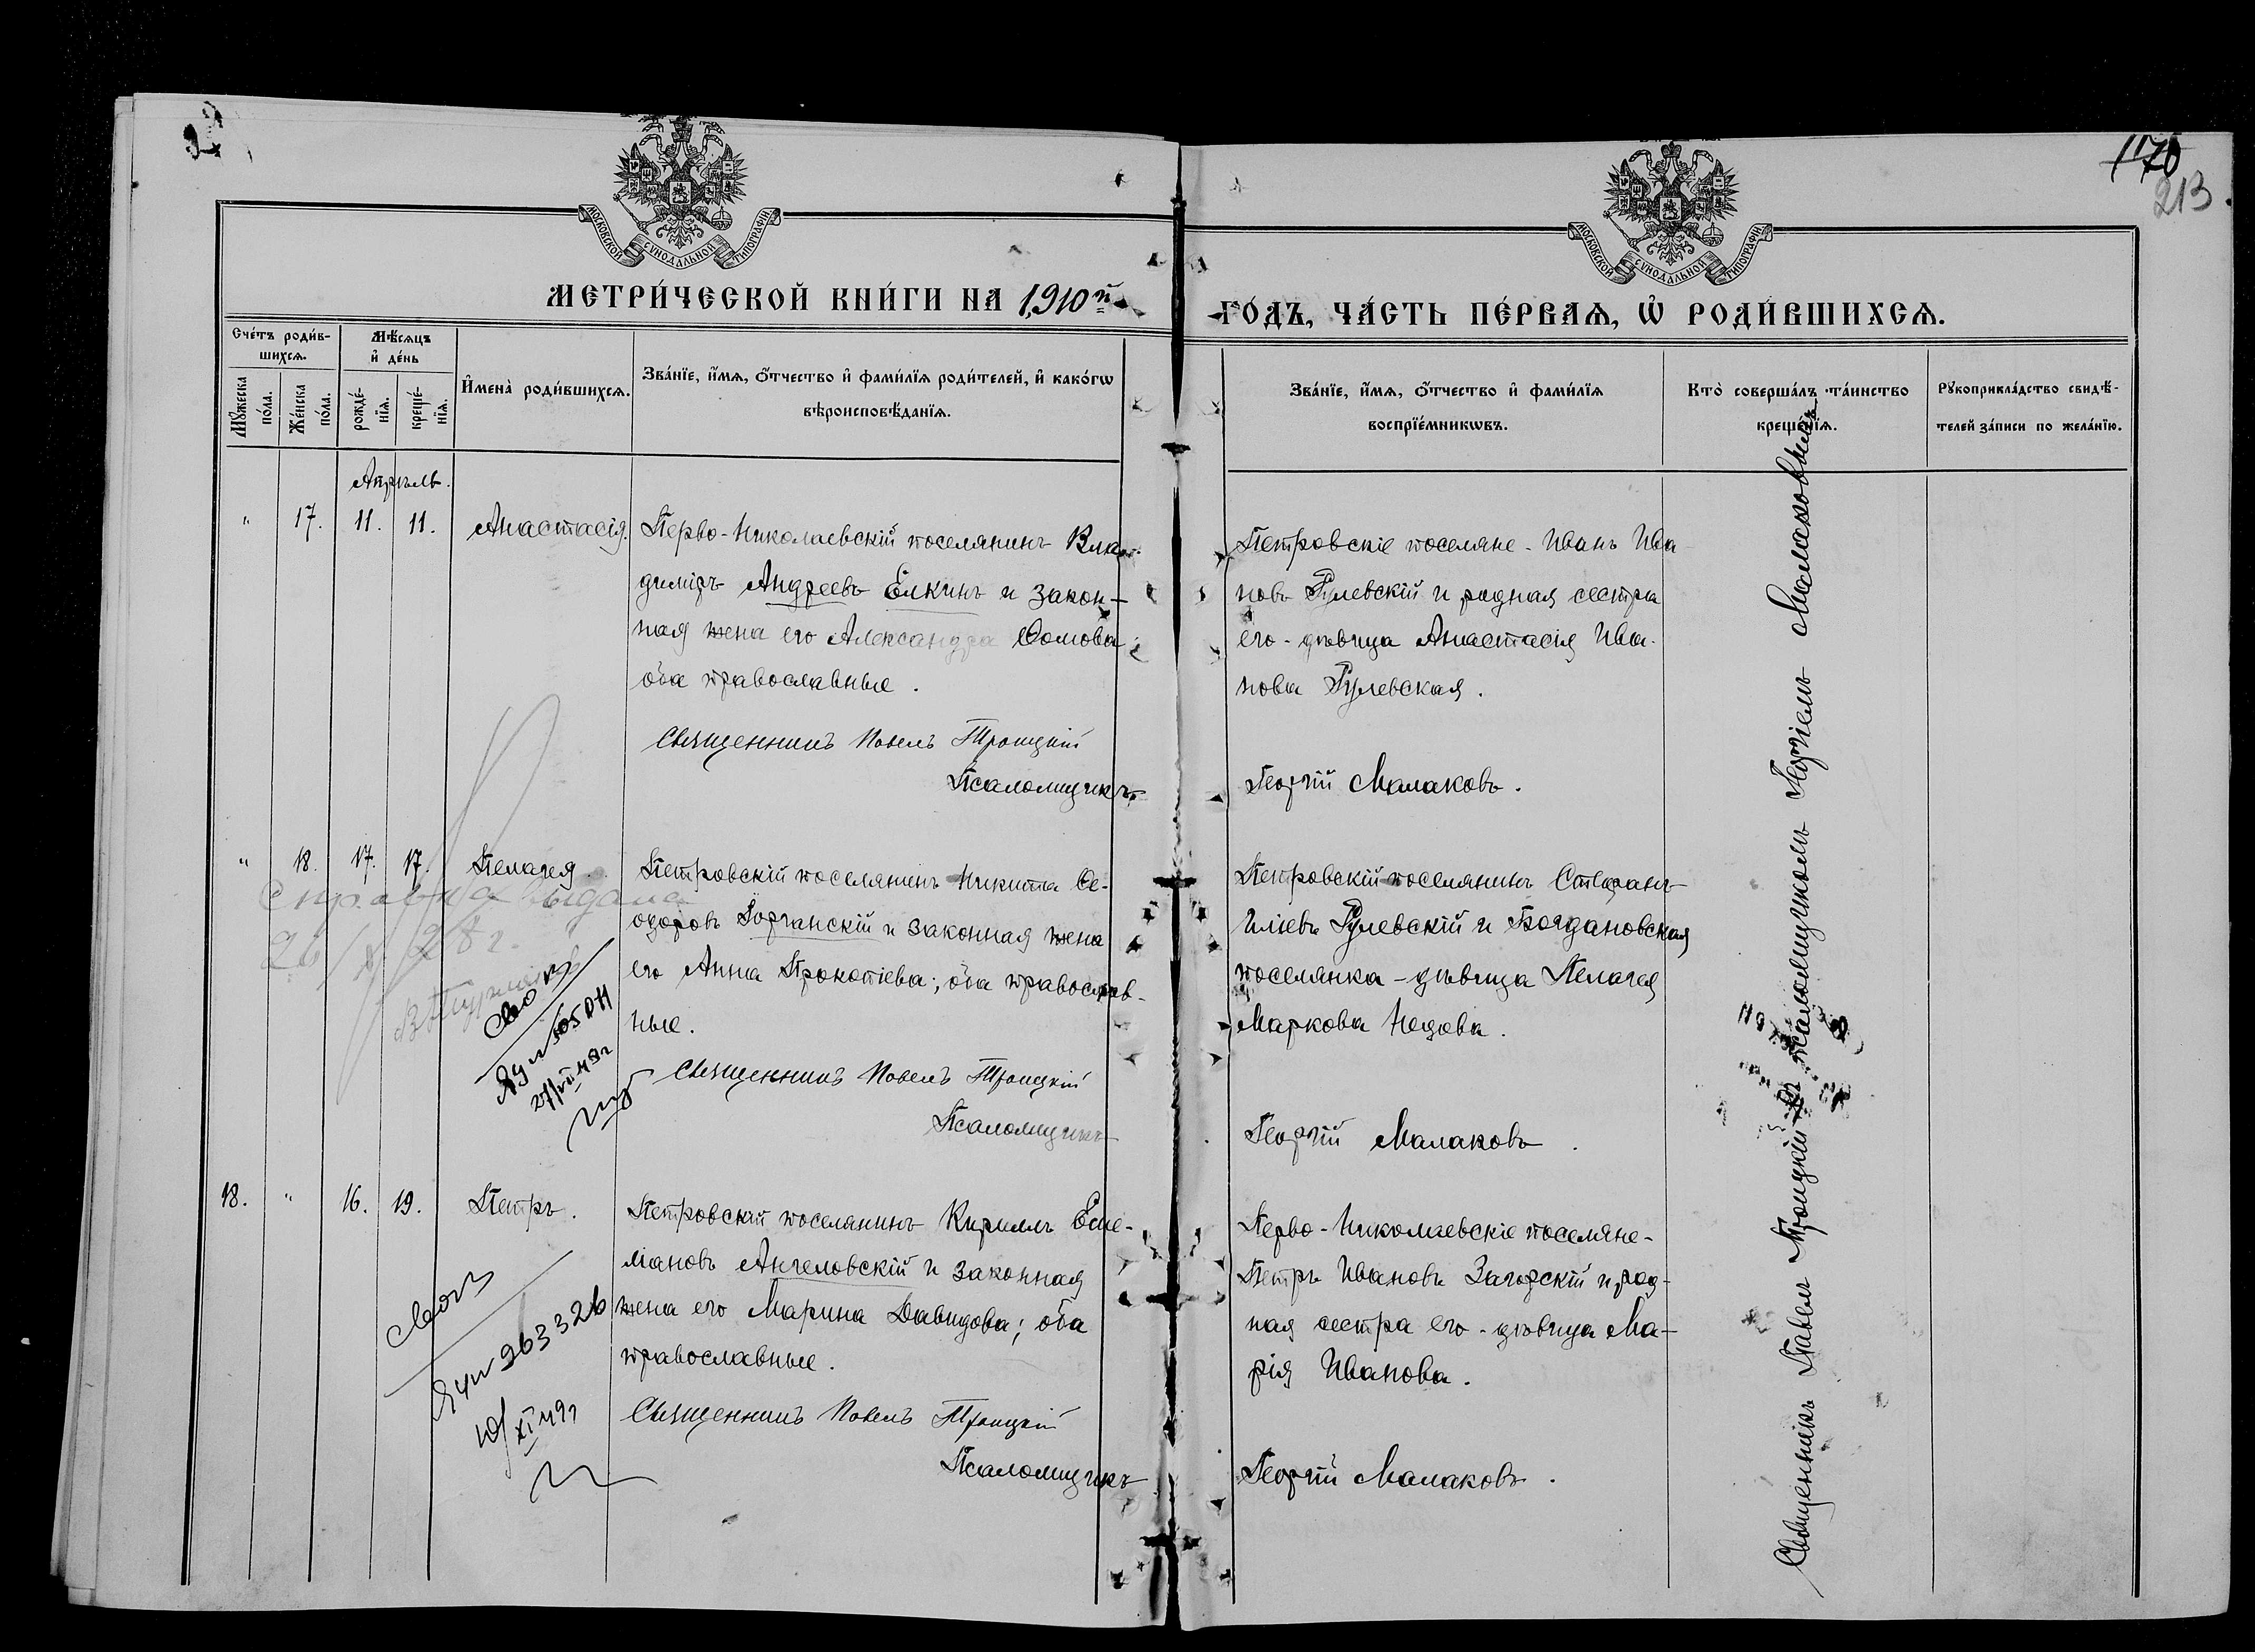 1170
213.
МОСКОВСКОЙ СУНОДАЛЬНОЙ ТИПОГРАФІИ
МОСКОВСКОЙ СУНОДАЛЬНОЙ ТИПОГРАФІИ
МЕТРИ́ЧЕСКОЙ КНИ́ГИ НА 1910й
ГО́ДЪ, ЧА́СТЬ ПЕ́РВАѦ, Ѡ҆ РОДИ́ВШИХСѦ.
Сче́тъ роди́в-
шихсѧ.
Мꙋ́жеска по́ла.
Же́нска по́ла.
Мѣ́сѧцъ
и҆ де́нь
рожде́-
нїѧ.
креще́-
нїѧ.
И҆мена̀ роди́вшихсѧ.
Зва́нїе, и҆́мѧ, ѻ҆́тчество и҆ фами́лїѧ роди́телей, и҆ како́гѡ
вѣроисповѣ́данїѧ.
Зва́нїе, и҆́мѧ, ѻ҆́тчество и҆ фами́лїѧ
воспрїе́мникѡвъ.
Кто̀ соверша́лъ та́инство
креще́нїѧ.
Рꙋкоприкла́дство свидѣ́-
телей за́писи по жела́нїю.
Апрѣль.
" 17. 11. 11. Анастасія.
Перво-Николаевскій поселянинъ Вла-
диміръ Андреевъ Ёлкинъ и закон-
ная жена его Александра Сомова;
оба православные.
Священникъ Павелъ Троицкій
Псаломщикъ
Петровскіе поселяне - Иванъ Ива-
новъ Гулевскій и родная сестра
его - дѣвица Анастасія Ива-
нова Гулевская.
Георгій Малаковъ.
" 18. 17. 17. Пелагея
Петровскій поселянинъ Никита Ѳе-
одоровъ Горчанскій и законная жена
его Анна Прокопіева; оба православ-
ные.
Священникъ Павелъ Троицкій
Псаломщикъ
Петровскій поселянинъ Стефанъ
Иліевъ Гулевскій и Богдановская
поселянка - дѣвица Пелагея
Маркова Недова.
Георгій Малаковъ.
Справка выдана
28 г.
18. " 16. 19. Петръ.
Петровскій поселянинъ Кириллъ Еме-
ліановъ Ангеловскій и законная
жена его Марина Давидова; оба
православные.
Священникъ Павелъ Троицкій
Псаломщикъ
Перво-Николаевскіе поселяне -
Петръ Ивановъ Загорскій и род-
ная сестра его - дѣвица Ма-
рія Иванова.
Георгій Малаковъ.
963326
Священникъ Павелъ Троицкій съ псаломщикомъ Георгіемъ Малаковымъ